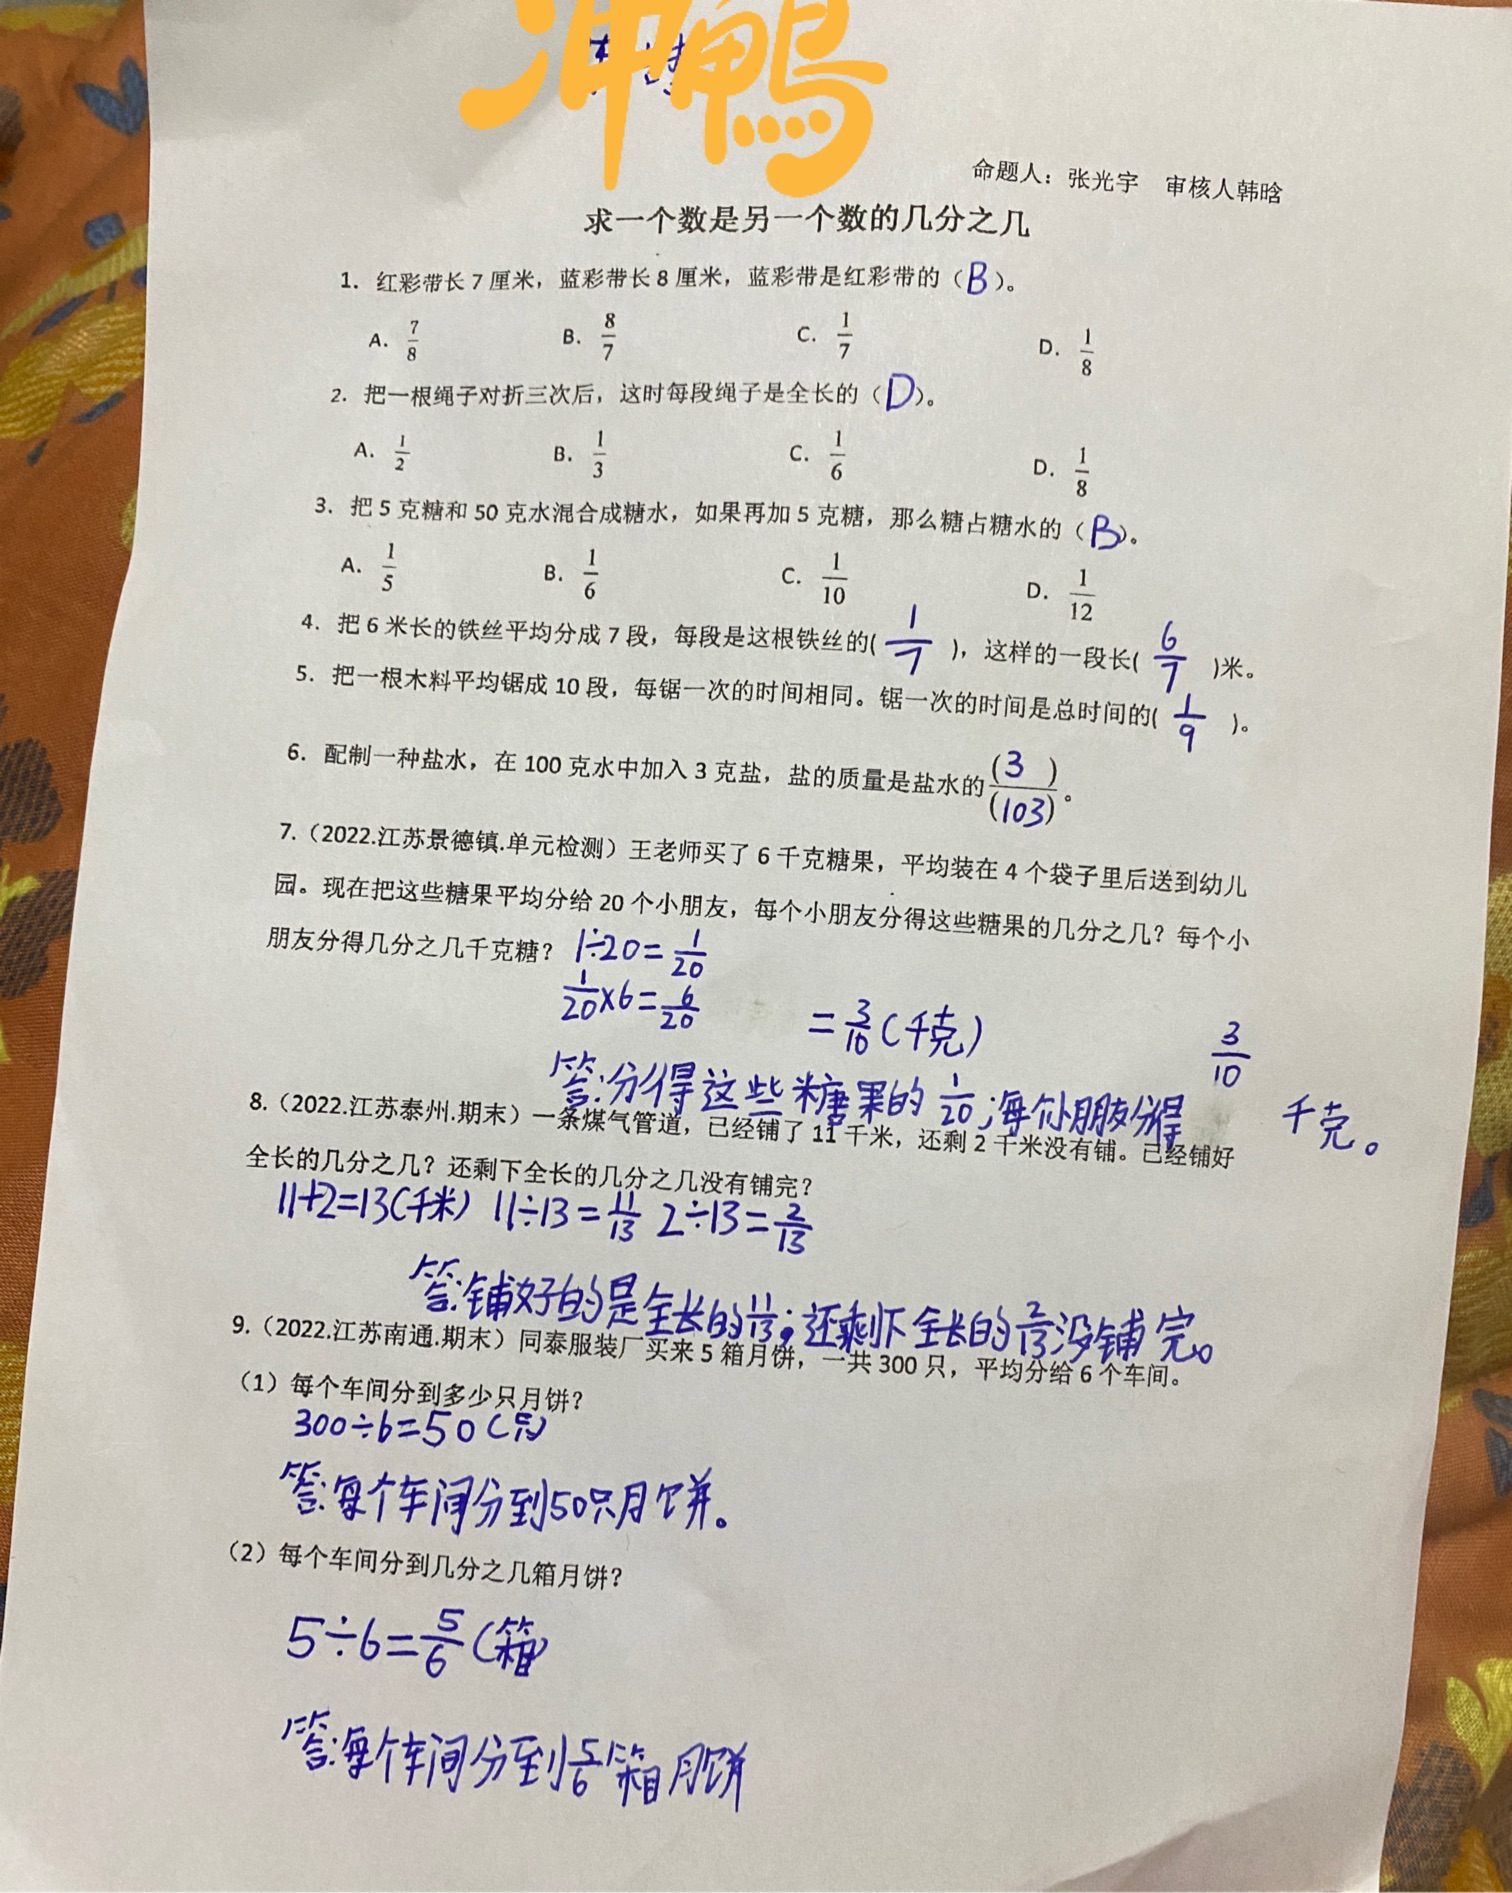 冲鸭
命题人：张光宇 审核人韩晗
求一个数是另一个数的几分之几
1. 红彩带长 7 厘米，蓝彩带长 8 厘米，蓝彩带是红彩带的（B）。
A. 7/8 B. 8/7 C. 1/7 D. 1/8
2. 把一根绳子对折三次后，这时每段绳子是全长的（D）。
A. 1/2 B. 1/3 C. 1/6 D. 1/8
3. 把 5 克糖和 50 克水混合成糖水，如果再加 5 克糖，那么糖占糖水的（B）。
A. 1/5 B. 1/6 C. 1/10 D. 1/12
4. 把 6 米长的铁丝平均分成 7 段，每段是这根铁丝的( 1/7 )，这样的一段长( 6/7 )米。
5. 把一根木料平均锯成 10 段，每锯一次的时间相同。锯一次的时间是总时间的( 1/9 )。
6. 配制一种盐水，在 100 克水中加入 3 克盐，盐的质量是盐水的(3)/(103)。
7.（2022.江苏景德镇.单元检测）王老师买了 6 千克糖果，平均装在 4 个袋子里后送到幼儿
园。现在把这些糖果平均分给 20 个小朋友，每个小朋友分得这些糖果的几分之几？每个小
朋友分得几分之几千克糖？ 1÷20=1/20
1/20×6=6/20 =3/10(千克)
答:分得这些糖果的1/20;每个小朋友分得 3/10 千克。
8.（2022.江苏泰州.期末）一条煤气管道，已经铺了 11 千米，还剩 2 千米没有铺。已经铺好
全长的几分之几？还剩下全长的几分之几没有铺完？
11+2=13(千米) 11÷13=11/13 2÷13=2/13
答:铺好的是全长的11/13;还剩下全长的2/13没铺完。
9.（2022.江苏南通.期末）同泰服装厂买来 5 箱月饼，一共 300 只，平均分给 6 个车间。
（1）每个车间分到多少只月饼？
300÷6=50(只)
答:每个车间分到50只月饼。
（2）每个车间分到几分之几箱月饼？
5÷6=5/6(箱)
答:每个车间分到5/6箱月饼